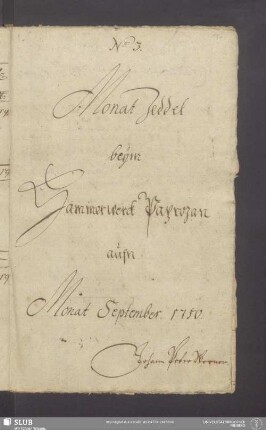 No 3.
Monat Zeddel
beÿm
Hammerwerck Payrozan
aufn
Monat September. 1750.
Johann Peter
SLUB